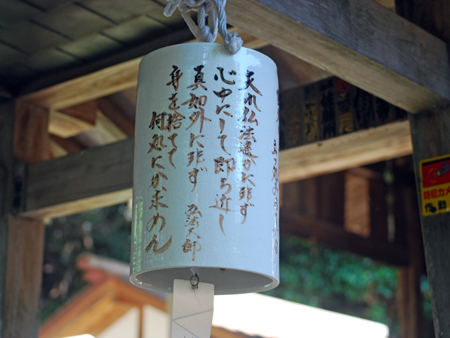 夫れ仏法遙かに非ず
心中にして即ち近し
真如外に非ず
身を捨てて
何処にか求めん
防犯カメラ
作動